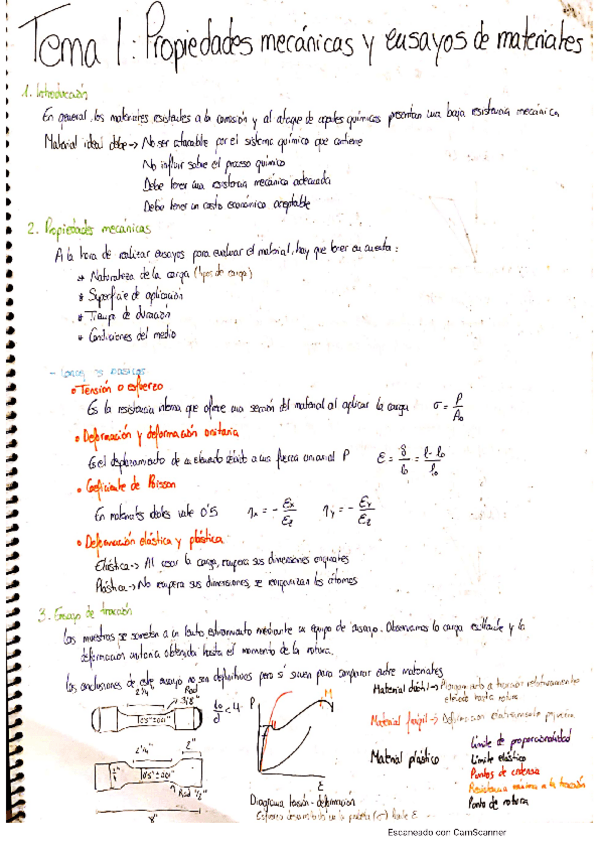 Tema 1: Propiedades mecánicas y ensayos de materiales
1. Introducción
En general, los materiales resistentes a la corrosión y al ataque de agentes químicos presentan una baja resistencia mecánica.
Material ideal debe → No ser atacable por el sistema químico que contiene
No influir sobre el proceso químico
Debe tener una resistencia mecánica adecuada
Debe tener un costo económico aceptable
2. Propiedades mecánicas
A la hora de realizar ensayos para evaluar el material, hay que tener en cuenta:
* Naturaleza de la carga (tipos de carga)
* Superficie de aplicación
* Tiempo de duración
* Condiciones del medio
• Tensión o esfuerzo
Es la resistencia interna que ofrece una sección del material al aplicar la carga σ = P/A₀
• Deformación y deformación unitaria
Es el desplazamiento de un elemento debido a una fuerza uniaxial P ε = δ/l₀ = l - l₀/l₀
• Coeficiente de Poisson
En materiales dúctiles vale 0'5 ηx = - εx/εz ηy = - εy/εz
• Deformación elástica y plástica
Elástica → Al cesar la carga, recupera sus dimensiones originales
Plástica → No recupera sus dimensiones, se reorganizan los átomos
3. Ensayo de tracción
Las muestras se someten a un lento estiramiento mediante un equipo de ensayo. Observamos la carga y la
deformación unitaria obtenida hasta el momento de la rotura.
Las conclusiones de este ensayo no son definitivas pero sí sirven para comparar entre materiales
2 1/4" Rad 3/8" l₀/d < 4 P M
0'5" ± 0.01"
2 1/4" 2"
0'5" ± 0.01"
Rad 1/2"
8"
ε
Diagrama tensión-deformación
Material dúctil → relativamente elevado hasta rotura
Material frágil → Deformación pequeña
Material plástico
Límite de proporcionalidad
Límite elástico
Puntos de cedencia
Resistencia máxima a la tracción
Punto de rotura
Escaneado con CamScanner